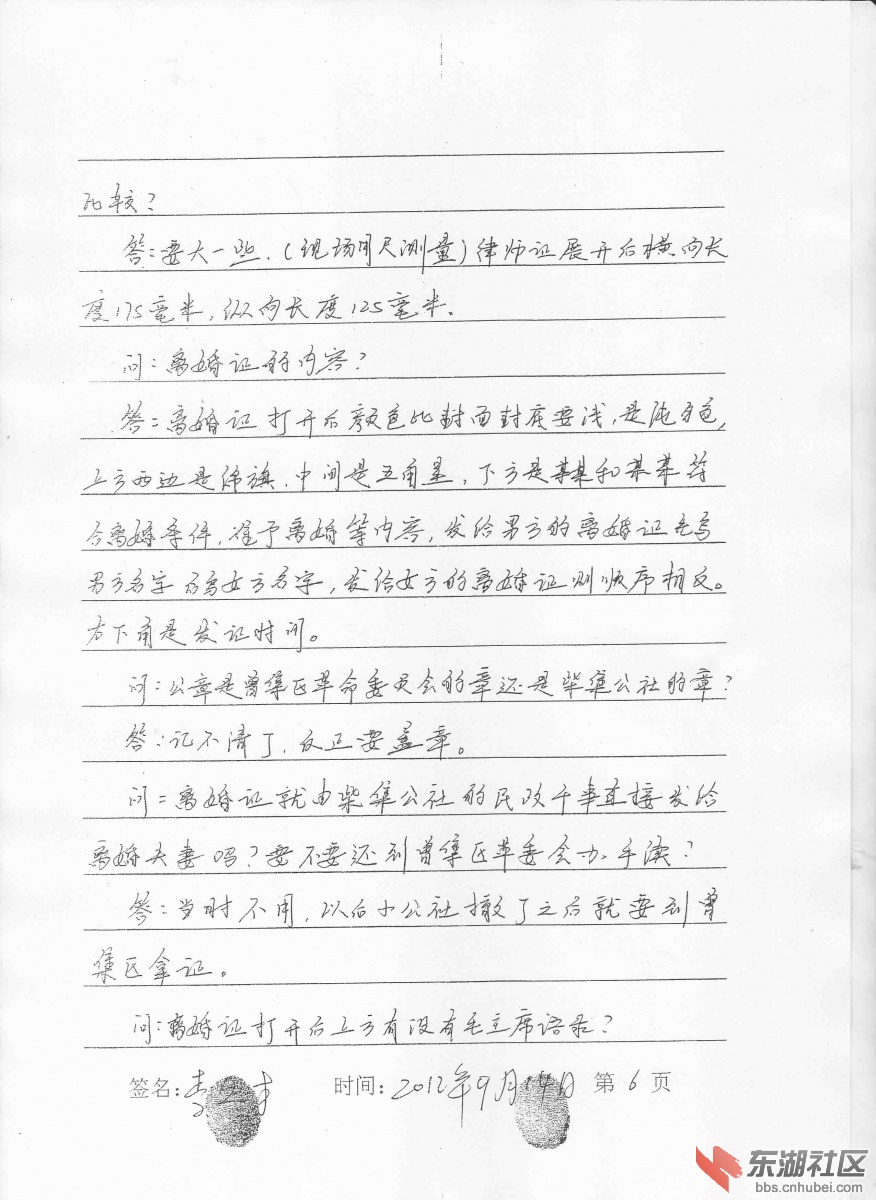 比较?
答:要大一些.(现场用尺测量)律师证展开后横向长
度175毫米,纵向长度125毫米.
问:离婚证的内容?
答:离婚证打开后颜色比封面封底要浅,是纯色,
上方两边是红旗.中间是五角星,下方是某某和某某符
合离婚条件,准予离婚等内容,发给男方的离婚证先写
男方名字后写女方名字,发给女方的离婚证则顺序相反。
右下角是发证时间。
问:公章是曾集区革命委员会的章还是柴集公社的章?
答:记不清了,反正要盖章。
问:离婚证就由柴集公社的民政干事直接发给
离婚夫妻吗?要不要还到曾集区革委会办手续?
答:当时不用,以后小公社撤了之后就要到曾
集区拿证。
问:离婚证打开后上方有没有毛主席语录?
签名:李 时间:2012年9月14日 第6页
东湖社区
bbs.cnhubei.com